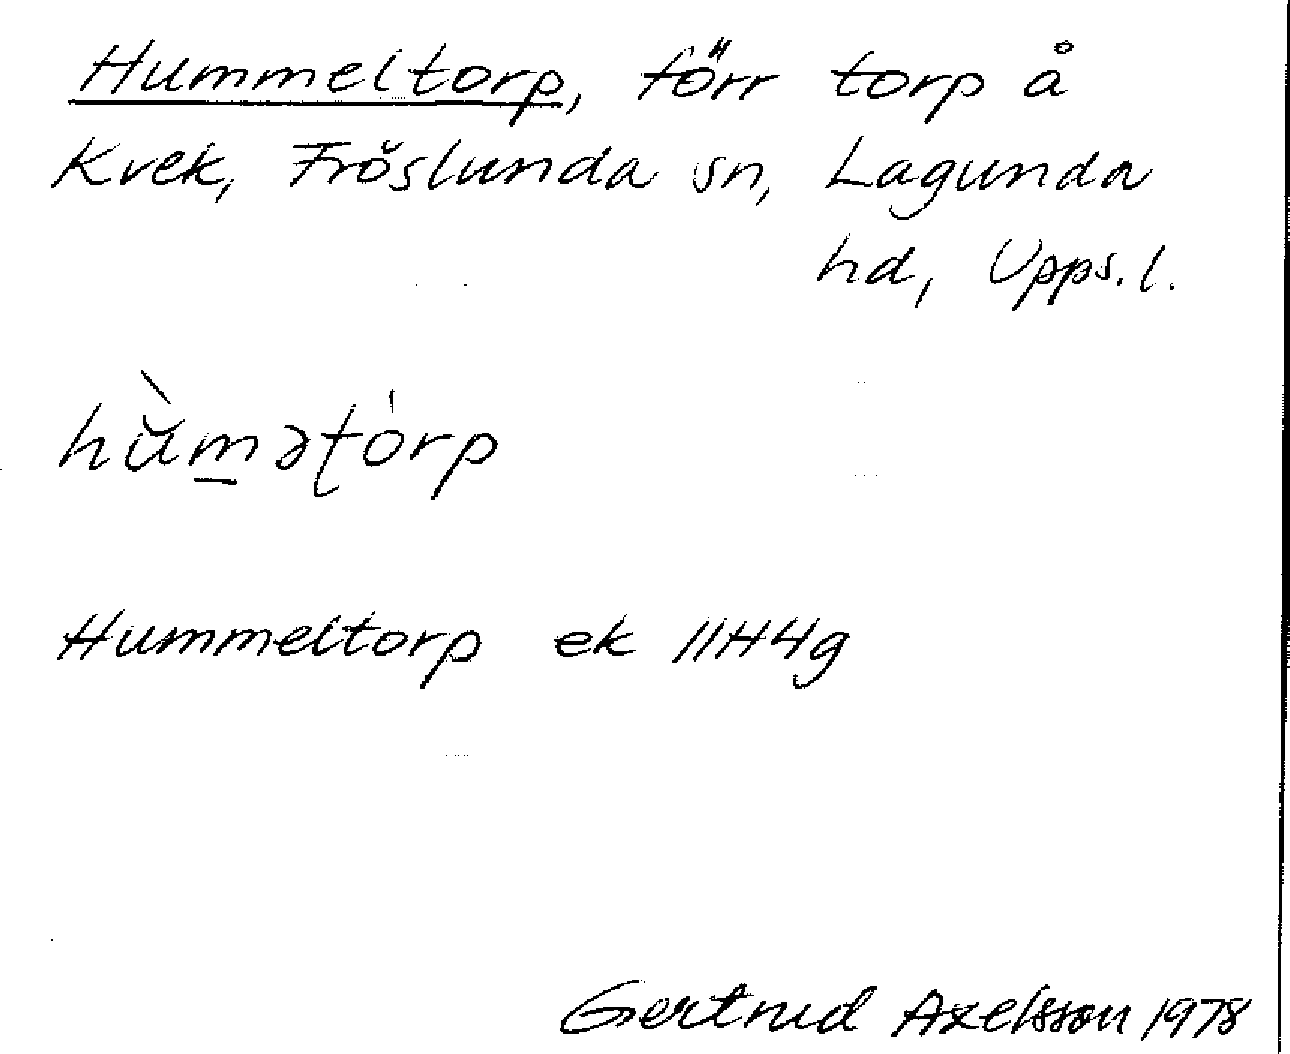 Hummeltorp, förr torp å
Kvek, Fröslunda sn, Lagunda
hd, Upps. l.
hù̆m̲əʈórp
Hummeltorp ek 11H4g
Gertrud Axelsson 1978